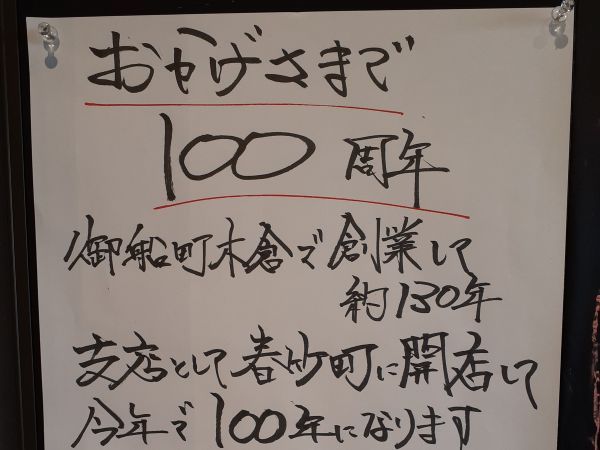 おかげさまで
100周年
御船町木倉で創業して
約130年
支店として春竹町に開店して
今年で100年になります